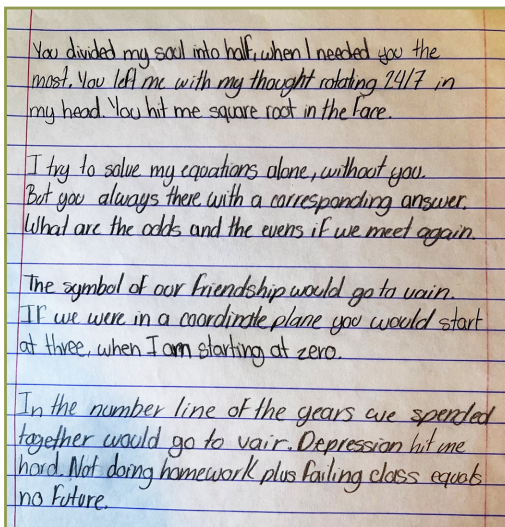 You divided my soul into half, when I needed you the
most. You left me with my thought rotating 24/7 in
my head. You hit me square root in the face.
I try to solve my equations alone, without you.
But you always there with a corresponding answer.
What are the odds and the evens if we meet again.
The symbol of our friendship would go to vain.
If we were in a coordinate plane you would start
at three, when I am starting at zero.
In the number line of the years we spended
together would go to vair. Depression hit me
hard. Not doing homework plus failing class equals
no future.